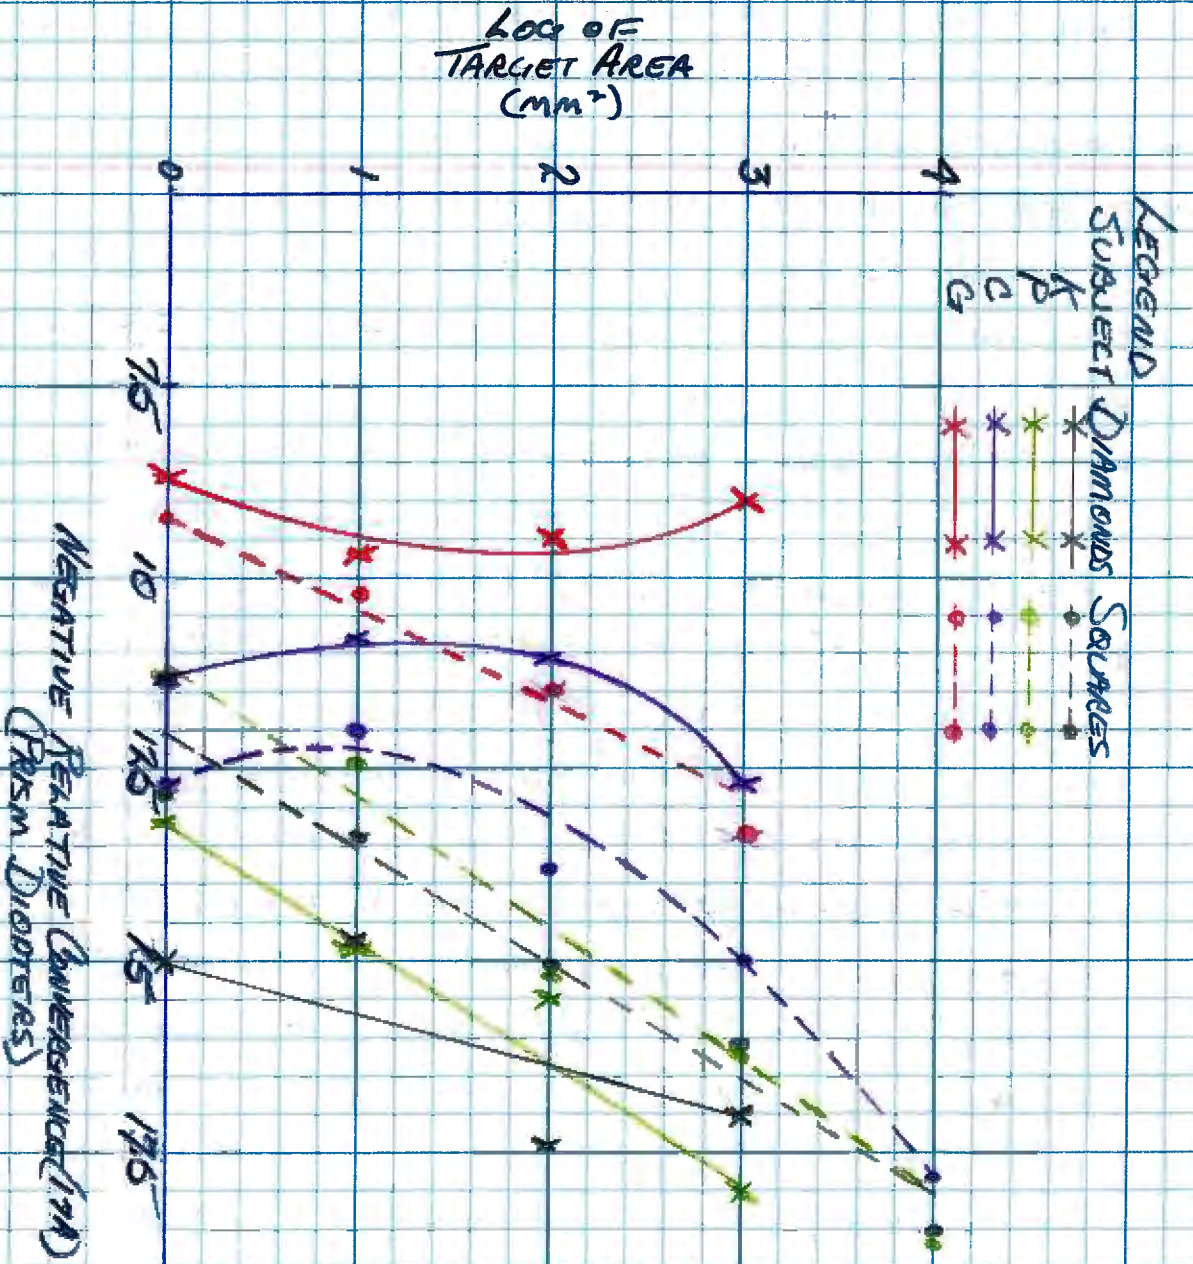 LOG OF
TARGET AREA
(mm²)
0
1
2
3
4
LEGEND
SUBJECT DIAMONDS SQUARES
K
P
C
G
7.5
10
12.5
15
17.5
NEGATIVE RELATIVE CONVERGENCE
(PRISM DIOPTERS)